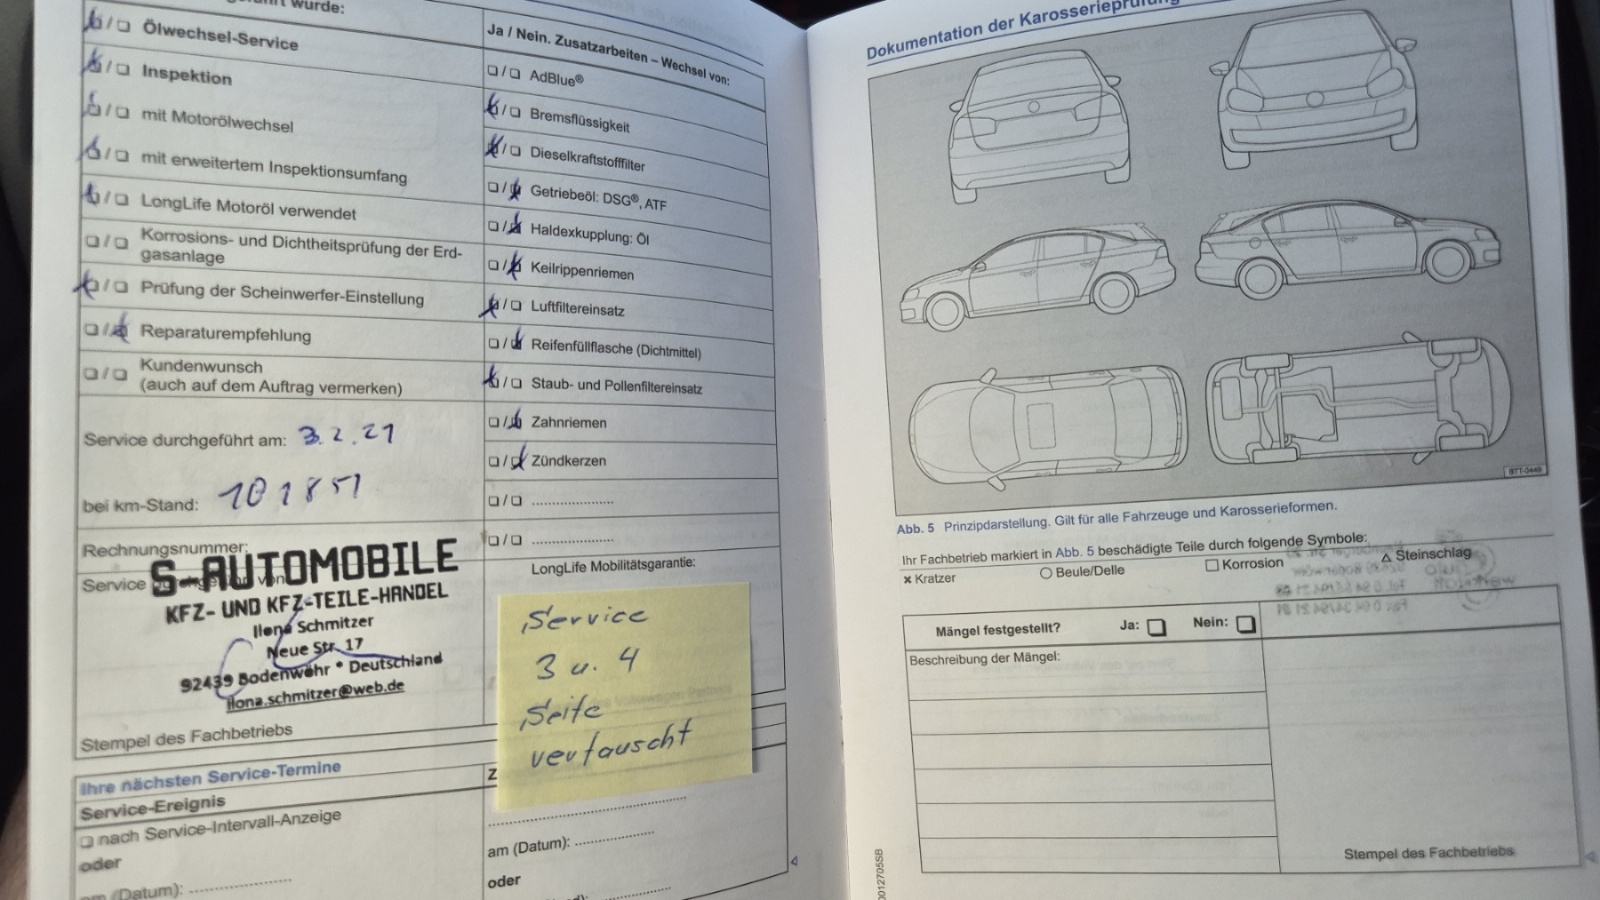 wurde:
❏/❏ Ölwechsel-Service
❏/❏ Inspektion
❏/❏ mit Motorölwechsel
❏/❏ mit erweitertem Inspektionsumfang
❏/❏ LongLife Motoröl verwendet
❏/❏ Korrosions- und Dichtheitsprüfung der Erd-
gasanlage
❏/❏ Prüfung der Scheinwerfer-Einstellung
❏/❏ Reparaturempfehlung
❏/❏ Kundenwunsch
(auch auf dem Auftrag vermerken)
Service durchgeführt am: 3.2.21
bei km-Stand: 101851
Rechnungsnummer:
Service
S. AUTOMOBILE
KFZ- UND KFZ-TEILE-HANDEL
Ilona Schmitzer
Neue Str. 17
92439 Bodenwöhr * Deutschland
ilona.schmitzer@web.de
Stempel des Fachbetriebs
Ihre nächsten Service-Termine
Service-Ereignis
❏ nach Service-Intervall-Anzeige
oder
am (Datum): ....................
Ja / Nein. Zusatzarbeiten – Wechsel von:
❏/❏ AdBlue®
❏/❏ Bremsflüssigkeit
❏/❏ Dieselkraftstofffilter
❏/❏ Getriebeöl: DSG®, ATF
❏/❏ Haldexkupplung: Öl
❏/❏ Keilrippenriemen
❏/❏ Luftfiltereinsatz
❏/❏ Reifenfüllflasche (Dichtmittel)
❏/❏ Staub- und Pollenfiltereinsatz
❏/❏ Zahnriemen
❏/❏ Zündkerzen
❏/❏ ....................
❏/❏ ....................
LongLife Mobilitätsgarantie:
Service
3 u. 4
Seite
vertauscht
Z
am (Datum): ....................
oder
Dokumentation der Karosserieprüfung
BTT-0449
Abb. 5 Prinzipdarstellung. Gilt für alle Fahrzeuge und Karosserieformen.
Ihr Fachbetrieb markiert in Abb. 5 beschädigte Teile durch folgende Symbole:
× Kratzer ○ Beule/Delle □ Korrosion △ Steinschlag
Mängel festgestellt? Ja: ❏ Nein: ❏
Beschreibung der Mängel:
Stempel des Fachbetriebs
0012705SB